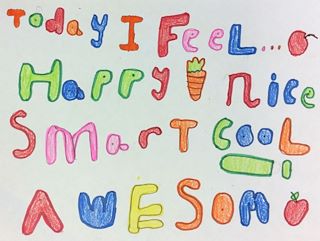 Today I FeeL...
Happy nice
SMarT CooL!
AWESOM